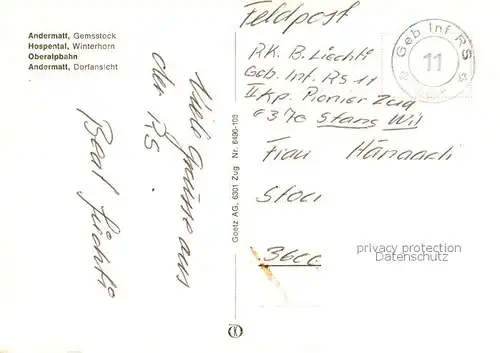 Andermatt, Gemsstock
Hospental, Winterhorn
Oberalpbahn
Andermatt, Dorfansicht
Viele Grüsse aus
der RS.
Beat Liechti
Goetz AG, 6301 Zug Nr. 6490-103
Feldpost
RK. B. Liechti
Geb. Inf. RS 11
II Kp. Pionier Zug
6370 Stans Wil
Frau
3600
Geb Inf RS
11
privacy protection
Datenschutz